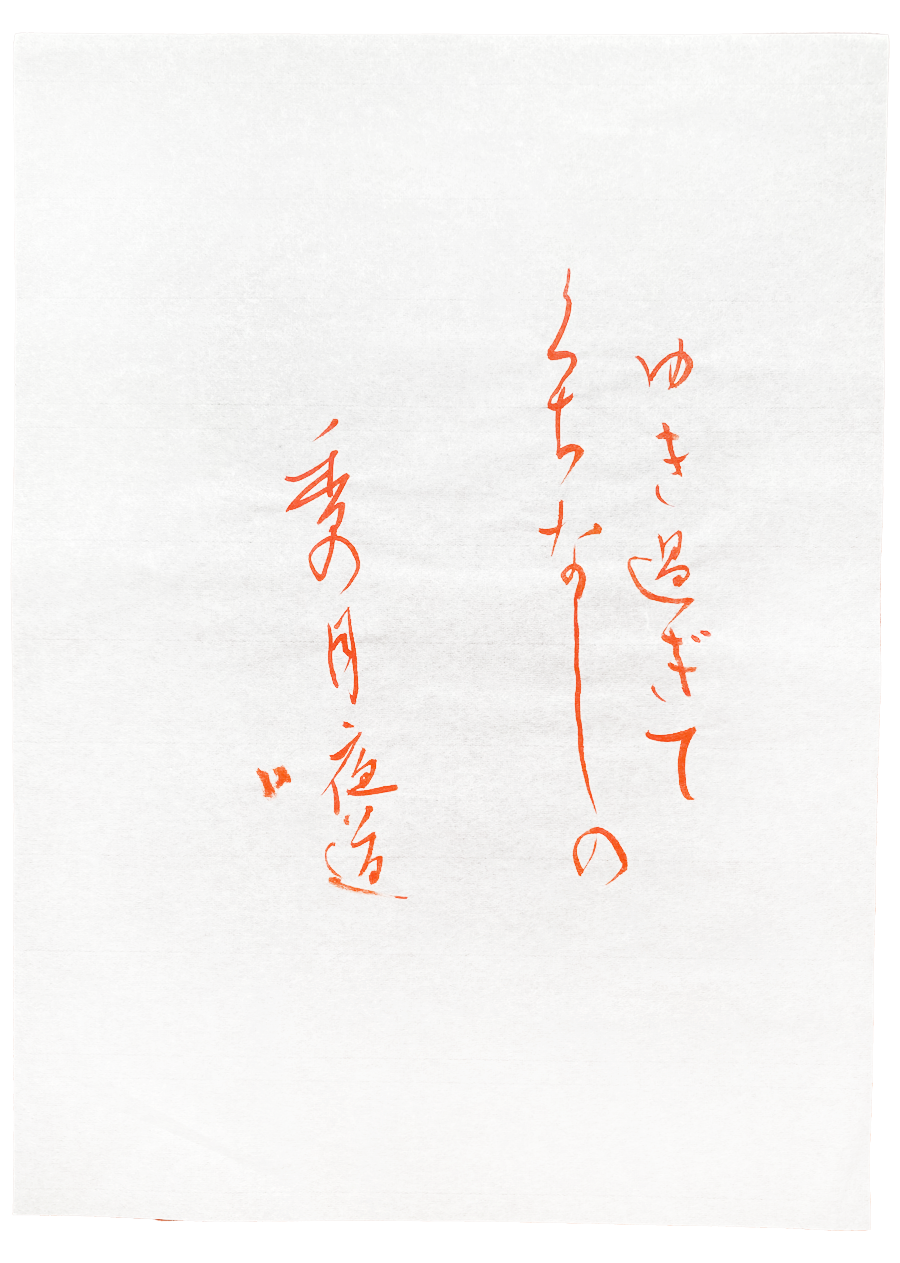 ゆき過ぎて
くちなしの
香の月夜道